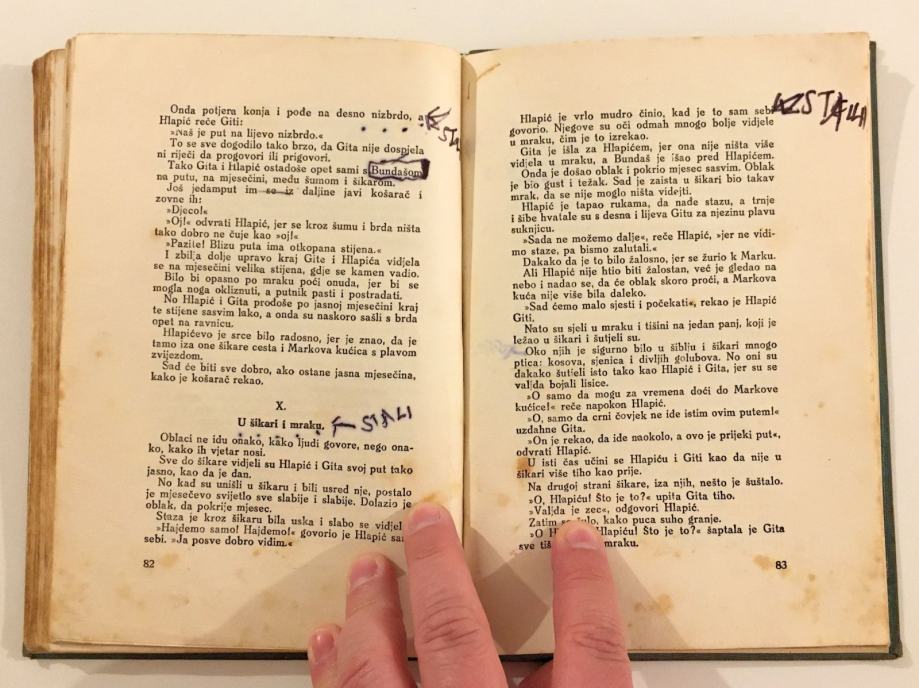 Onda potjera konja i pođe na desno nizbrdo, a
Hlapić reče Giti:
»Naš je put na lijevo nizbrdo.«
To se sve dogodilo tako brzo, da Gita nije dospjela
ni riječi da progovori ili prigovori.
Tako Gita i Hlapić ostadoše opet sami s Bundašom
na putu, na mjesečini, među šumom i šikarom.
Još jedamput im se iz daljine javi košarač i
zovne ih:
»Djeco!«
»Oj!« odvrati Hlapić, jer se kroz šumu i brda ništa
tako dobro ne čuje kao »oj!«
»Pazite! Blizu puta ima otkopana stijena.«
I zbilja dolje upravo kraj Gite i Hlapića vidjela
se na mjesečini velika stijena, gdje se kamen vadio.
Bilo bi opasno po mraku poći onuda, jer bi se
mogla noga okliznuti, a putnik pasti i postradati.
No Hlapić i Gita prođoše po jasnoj mjesečini kraj
te stijene sasvim lako, a onda su naskoro sašli s brda
opet na ravnicu.
Hlapićevo je srce bilo radosno, jer je znao, da je
tamo iza one šikare cesta i Markova kućica s plavom
zvijezdom.
Sad će biti sve dobro, ako ostane jasna mjesečina,
kako je košarač rekao.
X.
U šikari i mraku. STALI
Oblaci ne idu onako, kako ljudi govore, nego ona-
ko, kako ih vjetar nosi.
Sve do šikare vidjeli su Hlapić i Gita svoj put tako
jasno, kao da je dan.
No kad su unišli u šikaru i bili usred nje, postalo
je mjesečevo svijetlo sve slabije i slabije. Dolazio je
oblak, da pokrije mjesec.
Staza je kroz šikaru bila uska i slabo se
»Hajdemo samo! Hajdemo!« govorio je Hlapić
sebi. »Ja posve dobro vidim.«
82
Hlapić je vrlo mudro činio, kad je to sam sebi
govorio. Njegove su oči odmah mnogo bolje vidjele
u mraku, čim je to izrekao.
Gita je išla za Hlapićem, jer ona nije ništa više
vidjela u mraku, a Bundaš je išao pred Hlapićem.
Onda je došao oblak i pokrio mjesec sasvim. Oblak
je bio gust i težak. Sad je zaista u šikari bio takav
mrak, da se nije moglo ništa vidjeti.
Hlapić je tapao rukama, da nađe stazu, a trnje
i šibe hvatale su s desna i lijeva Gitu za njezinu plavu
suknjicu.
»Sada ne možemo dalje«, reče Hlapić, »jer ne vidi-
mo staze, pa bismo zalutali.«
Dakako da je to bilo žalosno, jer se žurio k Marku.
Ali Hlapić nije htio biti žalostan, već je gledao na
nebo i nadao se, da će oblak skoro proći, a Markova
kuća nije više bila daleko.
»Sad ćemo malo sjesti i počekati«, rekao je Hlapić
Giti.
Nato su sjeli u mraku i tišini na jedan panj, koji je
ležao u šikari i šutjeli su.
Oko njih je sigurno bilo u šiblju i šikari mnogo
ptica: kosova, sjenica i divljih golubova. No oni su
dakako šutjeli isto tako kao Hlapić i Gita, jer su se
valjda bojali lisice.
»O samo da mogu za vremena doći do Markove
kućice!« reče napokon Hlapić.
»O, samo da crni čovjek ne ide istim ovim putem!«
uzdahne Gita.
»On je rekao, da ide naokolo, a ovo je prijeki put«,
odvrati Hlapić.
U isti čas učini se Hlapiću i Giti kao da nije u
šikari više tiho kao prije.
Na drugoj strani šikare, iza njih, nešto je šuštalo.
»O, Hlapiću! Što je to?« upita Gita tiho.
»Valjda je zec«, odgovori Hlapić.
Zatim kako puca suho granje.
»O Hlapiću! Što je to?« šaptala je Gita
sve mraku.
83